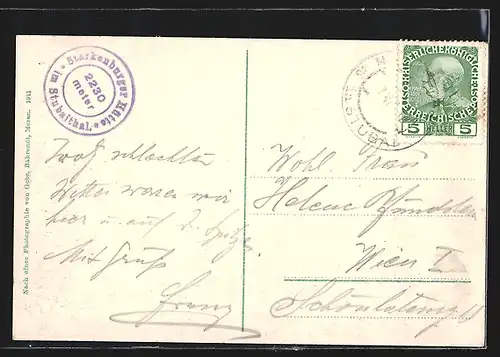 Starkenburger Hütte
2230
meter
im Stubaithal.
Nach einer Photographie von Gebr. Bährendt, Meran. 1911
KAISERLICHE KÖNIGLICHE
ÖSTERREICHISCHE
5 HELLER 5
Trotz schlechten
Wetter waren wir
hier u. auf d. Spitze.
Mit Gruß
Franz
Wohl. Frau
Helene
Wien I